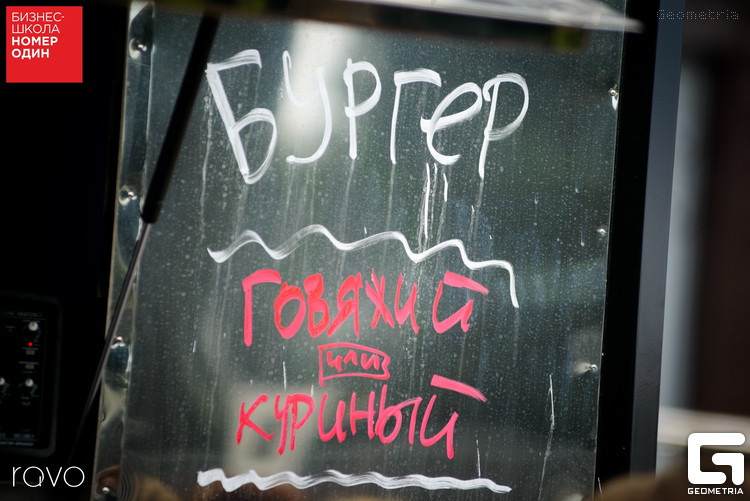 БИЗНЕС-
ШКОЛА
НОМЕР
ОДИН
Geometria
БУРГЕР
ГОВЯЖИЙ
или
КУРИНЫЙ
ravo
GEOMETRIA